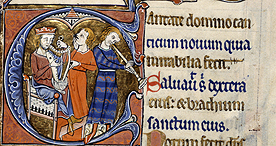 antate domino can
ticum novum quia
mirabilia fecit
Saluauit s dextera
eius et brachium
sanctum eius.
otum fecit dns